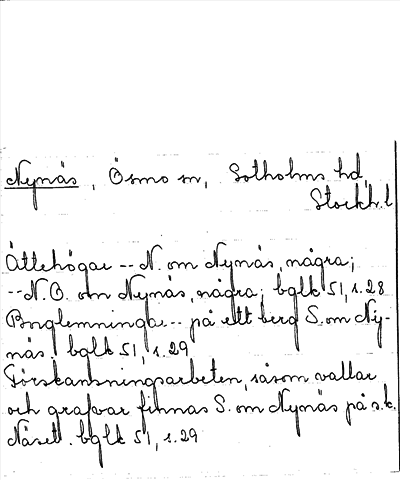 Nynäs, Ösmo sn, Sotholms hd,
Stockh.l
Ättehögar -- N. om Nynäs, några;
--N.O. om Nynäs, några; bglt 51, s.28
Borglemningar -- på ett berg S. om Ny-
näs. bglt 51, s.29
Förskansningsarbeten, såsom vallar
och grafvar finnas S. om Nynäs på s.k.
Näsett. bglt 51, s.29